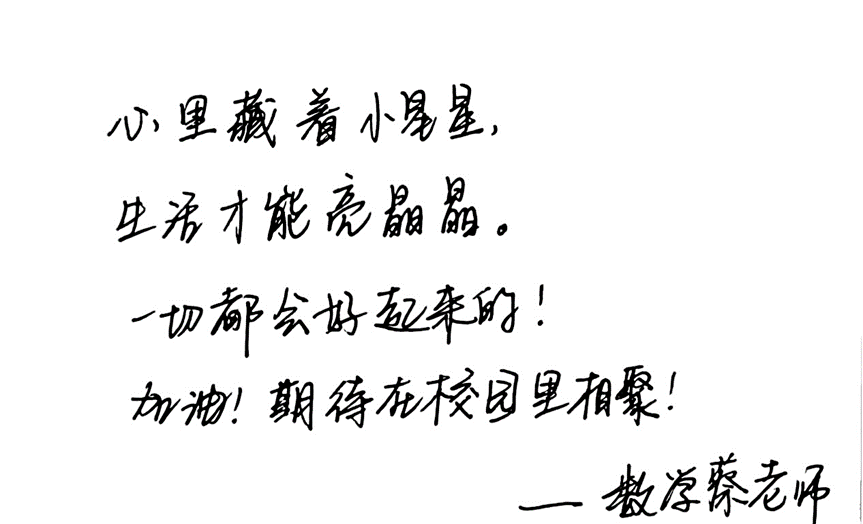 心里藏着小星星,
生活才能亮晶晶。
一切都会好起来的!
加油!期待在校园里相聚!
——数学蔡老师